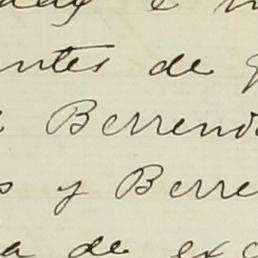 ntes de
Berrend
s y Berre
a de exc